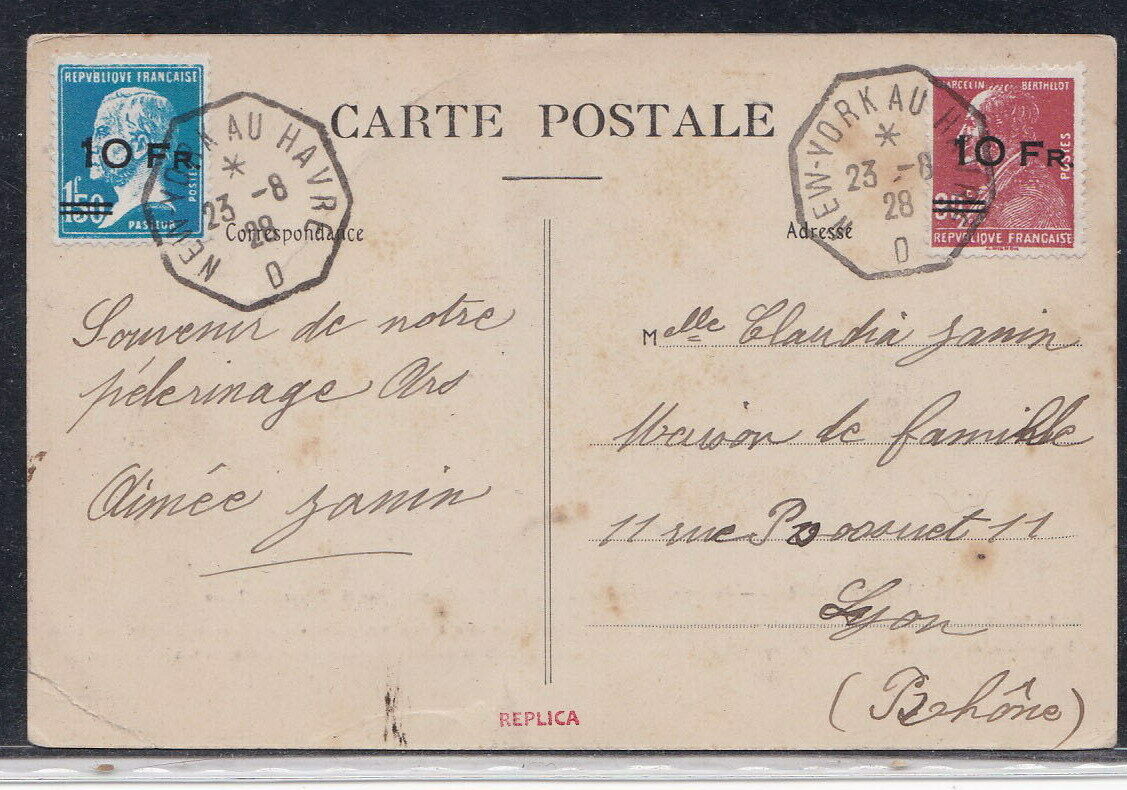 REPVBLIQVE FRANÇAISE
10 Fr.
1f50
POSTES
PASTEUR
NEW-YORK AU HAVRE
*
23 -8
28
D
CARTE POSTALE
NEW-YORK AU HAVRE
*
23 -8
28
D
MARCELIN BERTHELOT
10 Fr.
POSTES
REPVBLIQVE FRANÇAISE
Correspondance
Adresse
Souvenir de notre
pélerinage Ars
Aimée Janin
Melle Claudia Janin
Maison de famille
11 rue Bossuet 11
Lyon
(Rhône)
REPLICA